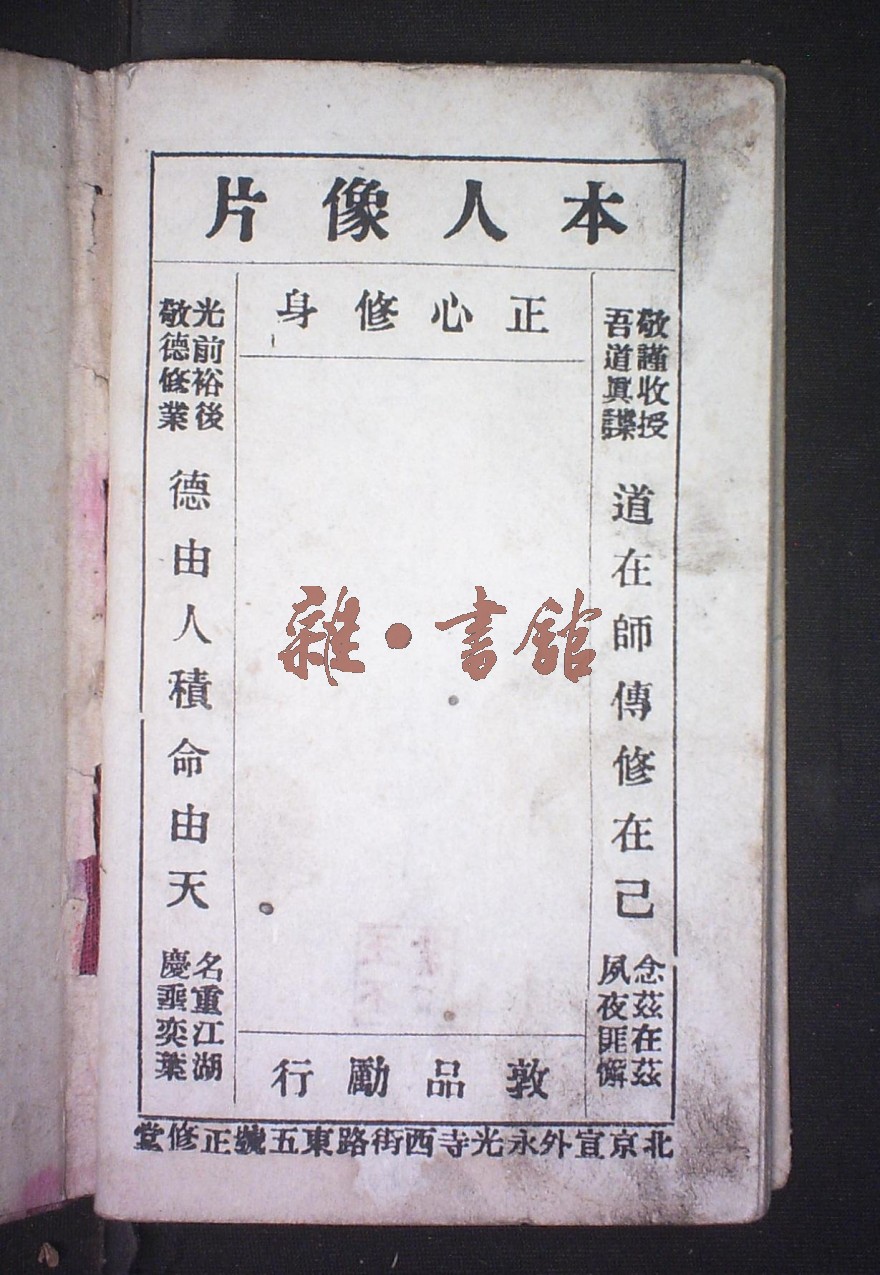 本人像片
正心修身
敬謹收授
吾道眞諜
道在師傳修在己
念茲在茲
夙夜匪懈
光前裕後
敬德修業
德由人積命由天
名重江湖
慶垂奕葉
敦品勵行
北京宣外永光寺西街路東五號正修堂
雜·書館